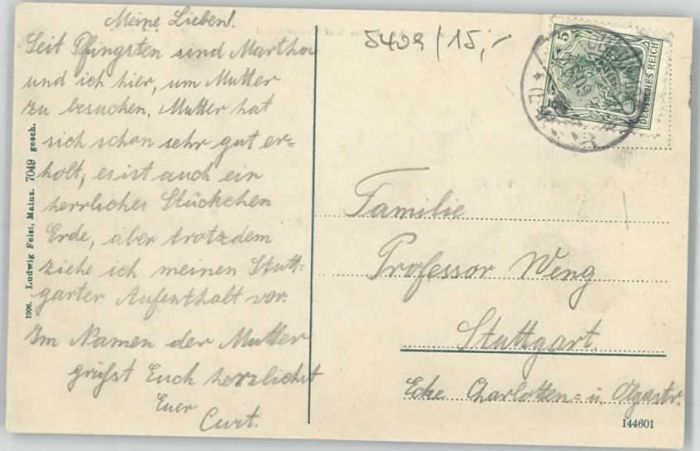 Meine Lieben!
Seit Pfingsten sind Martha
und ich hier, um Mutter
zu besuchen. Mutter hat
sich schon sehr gut er=
holt, es ist auch ein
herrliches Stückchen
Erde, aber trotzdem
ziehe ich meinen Stutt-
garter Aufenthalt vor.
Im Namen der Mutter
grüßt Euch herzlichst
Euer
Curt.
1906. Ludwig Feist, Mainz. 7049 gesch.
5409/15,-
5
DEUTSCHES REICH
Familie
Professor Weng
Stuttgart.
Ecke Charlotten= u. Olgastr.
144601